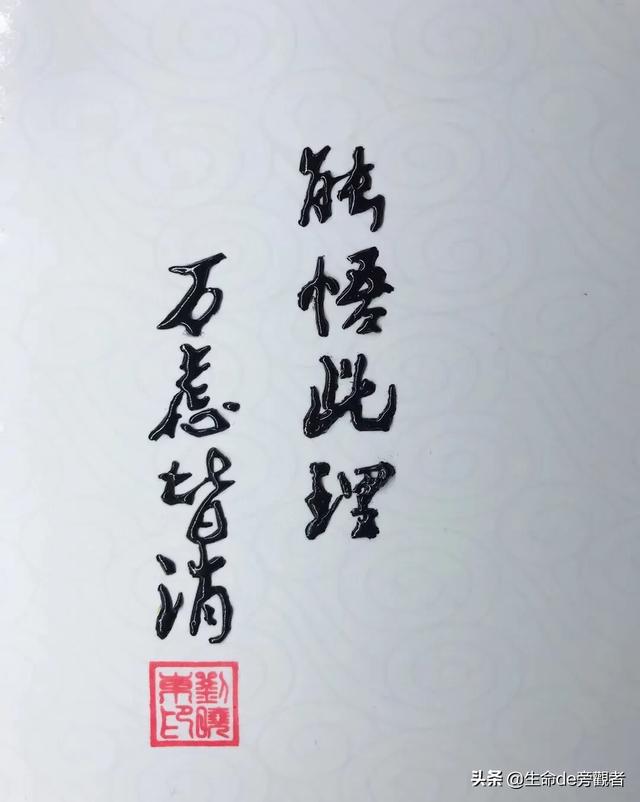 能悟此理
万虑皆消
劉曉東印
头条 @生命de旁觀者